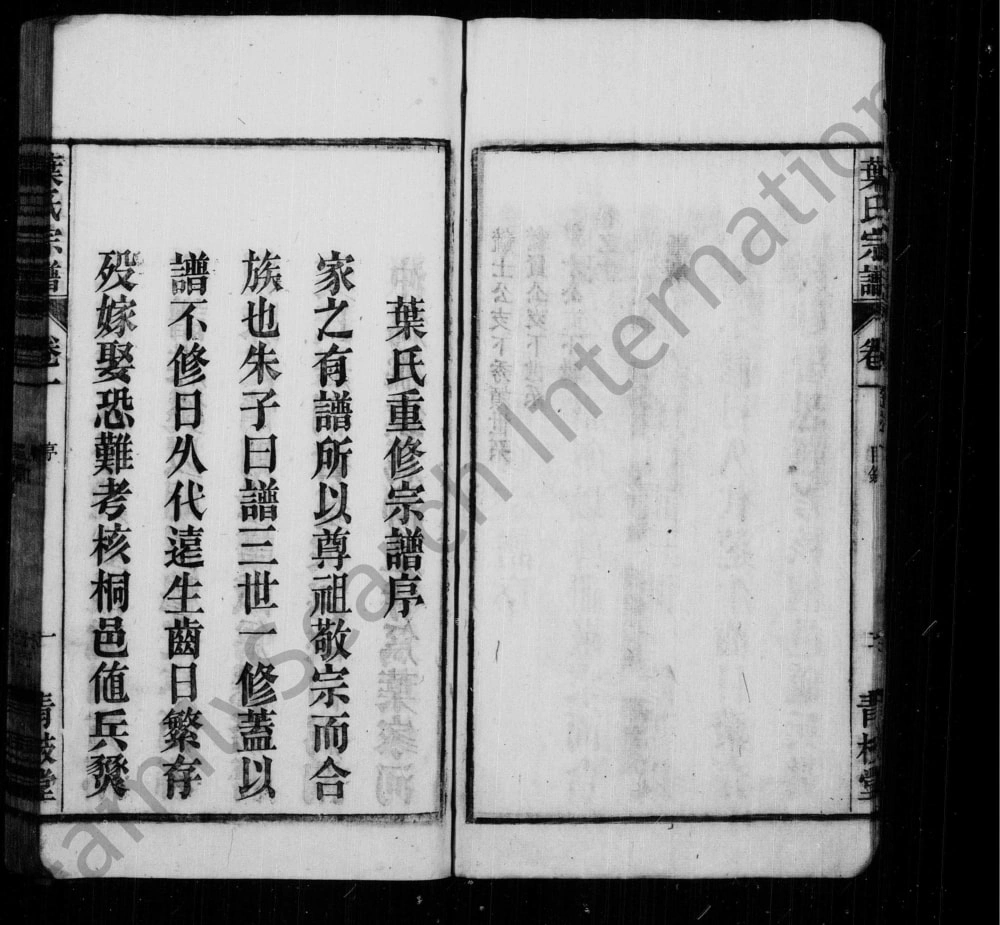 葉氏宗譜
卷一
目錄
青枝堂
葉氏重修宗譜序
家之有譜所以尊祖敬宗而合
族也朱子曰譜三世一修蓋以
譜不修日久代遠生齒日繁存
歿嫁娶恐難考核桐邑値兵燹
葉氏宗譜
卷一
序
一
青枝堂
FamilySearch International